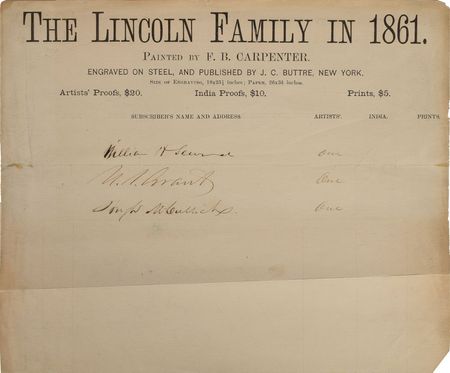 THE LINCOLN FAMILY IN 1861.
PAINTED BY F. B. CARPENTER.
ENGRAVED ON STEEL, AND PUBLISHED BY J. C. BUTTRE, NEW YORK.
SIZE OF ENGRAVING, 18x23½ inches; PAPER, 26x31 inches.
Artists' Proofs, $20. India Proofs, $10. Prints, $5.
SUBSCRIBER'S NAME AND ADDRESS ARTISTS'. INDIA. PRINTS.
William H Seward one
U. S. Grant One
Hugh McCulloch. One